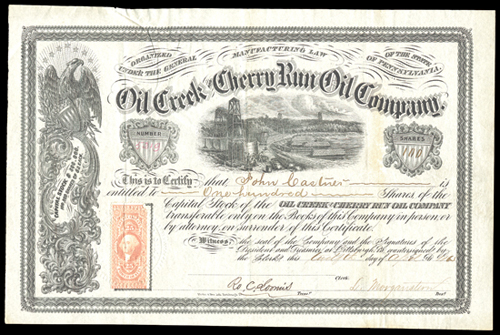 ORGANIZED UNDER THE GENERAL MANUFACTURING LAW OF THE STATE OF PENNSYLVANIA
Oil Creek & Cherry Run Oil Company.
NUMBER
SHARES
100
This is to Certify that John Castner is
entitled to One hundred Shares of the
Capital Stock of the OIL CREEK & CHERRY RUN OIL COMPANY
transferable only on the Books of this Company in person or
by attorney on Surrender of this Certificate.
Witness the seal of the Company and the Signatures of the
President and Treasurer at Pittsburgh, Pa. countersigned by
the Clerk this day of 186
Clerk
Ro. C. Loomis Treas. Pres.